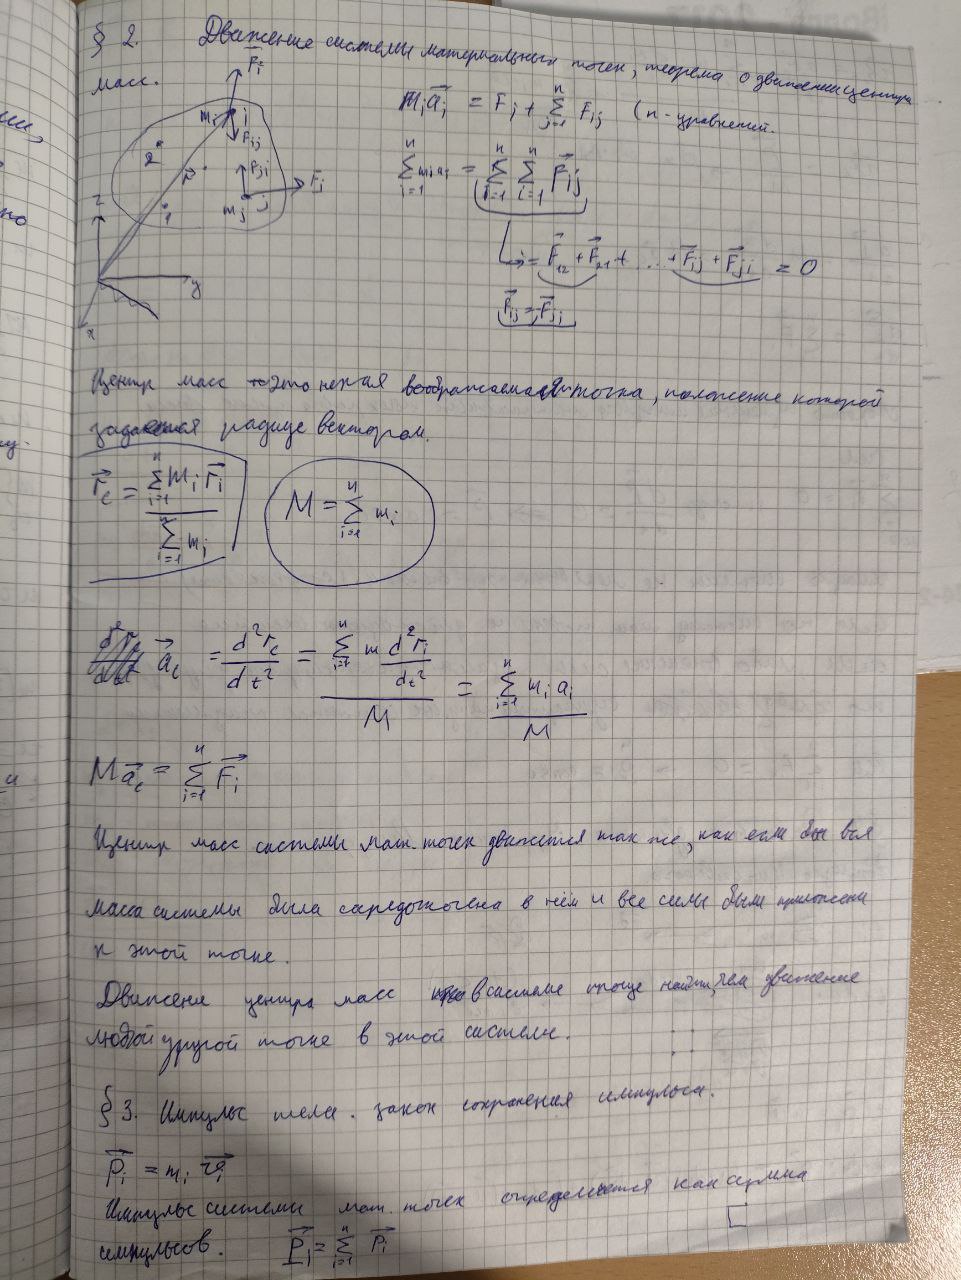 § 2. Движение системы материальных точек, теорема о движении центра
масс.
F⃗i
mi i
Fij
2
r⃗
Fji
F⃗j
mj j
1
z
y
x
mia⃗i = Fi + Σ(j=1..n) Fij (n - уравнений.
Σ(i=1..n) miai = Σ(i=1..n) Σ(i=1..n) F⃗ij
= F⃗12 + F⃗21 + ... + F⃗ij + F⃗ji = 0
F⃗ij = -F⃗ji
Центр масс - это некая воображаемая точка, положение которой
задается радиус вектором.
r⃗c = Σ(i=1..n) mi r⃗i / Σ(i=1..n) mi
M = Σ(i=1..n) mi
a⃗c = d²rc/dt² = Σ(i=1..n) m d²ri/dt² / M = Σ(i=1..n) mi ai / M
Ma⃗c = Σ(i=1..n) F⃗i
Центр масс системы мат. точек движется так же, как если бы вся
масса системы была сосредоточена в нём и все силы были приложены
к этой точке.
Движение центра масс в системе проще найти, чем движение
любой другой точке в этой системе.
§ 3. Импульс тела. закон сохранения импульса.
p⃗i = mi v⃗i
Импульс системы мат. точек определяется как сумма
импульсов. P⃗i = Σ(i=1..n) p⃗i